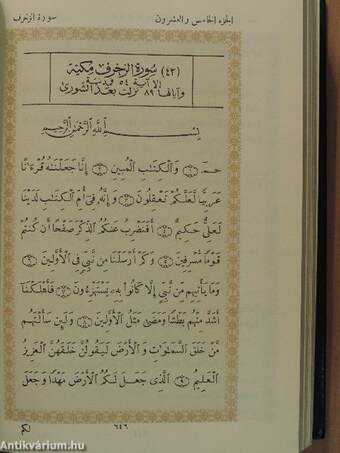 الجزء الخامس والعشرون
سورة الزخرف
(٤٣) سُورَةُ الزُّخْرُفِ مَكِيَّة
إلا آية ٥٤ فمدنية
وآياتها ٨٩ نزلت بعد الشورى
بِسْمِ اللَّهِ الرَّحْمَٰنِ الرَّحِيمِ
حمٓ ۝١ وَٱلْكِتَٰبِ ٱلْمُبِينِ ۝٢ إِنَّا جَعَلْنَٰهُ قُرْءَٰنًا
عَرَبِيًّا لَّعَلَّكُمْ تَعْقِلُونَ ۝٣ وَإِنَّهُۥ فِىٓ أُمِّ ٱلْكِتَٰبِ لَدَيْنَا
لَعَلِىٌّ حَكِيمٌ ۝٤ أَفَنَضْرِبُ عَنكُمُ ٱلذِّكْرَ صَفْحًا أَن كُنتُمْ
قَوْمًا مُّسْرِفِينَ ۝٥ وَكَمْ أَرْسَلْنَا مِن نَّبِىٍّ فِى ٱلْأَوَّلِينَ ۝٦
وَمَا يَأْتِيهِم مِّن نَّبِىٍّ إِلَّا كَانُوا۟ بِهِۦ يَسْتَهْزِءُونَ ۝٧ فَأَهْلَكْنَآ
أَشَدَّ مِنْهُم بَطْشًا وَمَضَىٰ مَثَلُ ٱلْأَوَّلِينَ ۝٨ وَلَئِن سَأَلْتَهُم
مَّنْ خَلَقَ ٱلسَّمَٰوَٰتِ وَٱلْأَرْضَ لَيَقُولُنَّ خَلَقَهُنَّ ٱلْعَزِيزُ
ٱلْعَلِيمُ ۝٩ ٱلَّذِى جَعَلَ لَكُمُ ٱلْأَرْضَ مَهْدًا وَجَعَلَ
لكم
٦٤٦
Antikvárium.hu